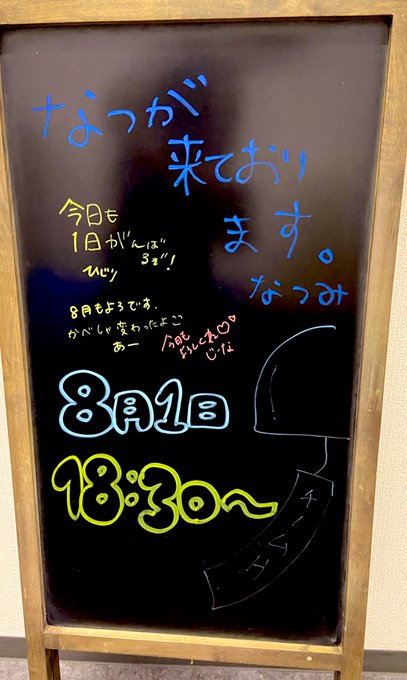 なつが
来ており
ます。
なつみ
今日も
1日がんば
るぞ!
ひじり
8月もよろです.
かべしゃ変わったよこ
あー
今日も
よろしくね♡♡
じーな
8月1日
18:30~